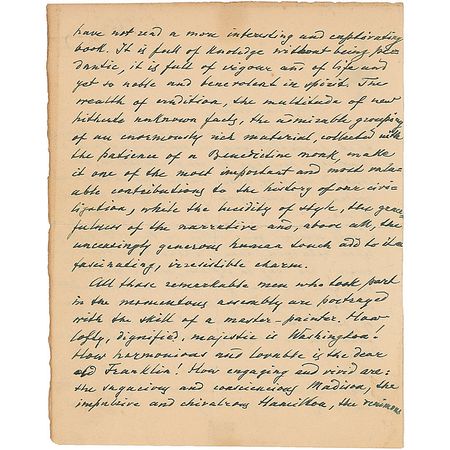 have not read a more interesting and captivating
book. It is full of knowledge without being pe-
dantic, it is full of vigour and of life and
yet so noble and benevolent in spirit. The
wealth of erudition, the multitude of new
hitherto unknown facts, the admirable grouping
of an enormously rich material, collected with
the patience of a Benedictine monk, make
it one of the most important and most valu-
able contributions to the history of our civi-
lization, while the lucidity of style, the grace-
fulness of the narrative and, above all, the
unceasingly generous human touch add to its
fascinating, irresistible charm.
All those remarkable men who took part
in the momentous assembly are portrayed
with the skill of a master painter. How
lofty, dignified, majestic is Washington!
How harmonious and lovable is the dear
old Franklin! How engaging and vivid are:
the sagacious and conscientious Madison, the
impulsive and chivalrous Hamilton, the